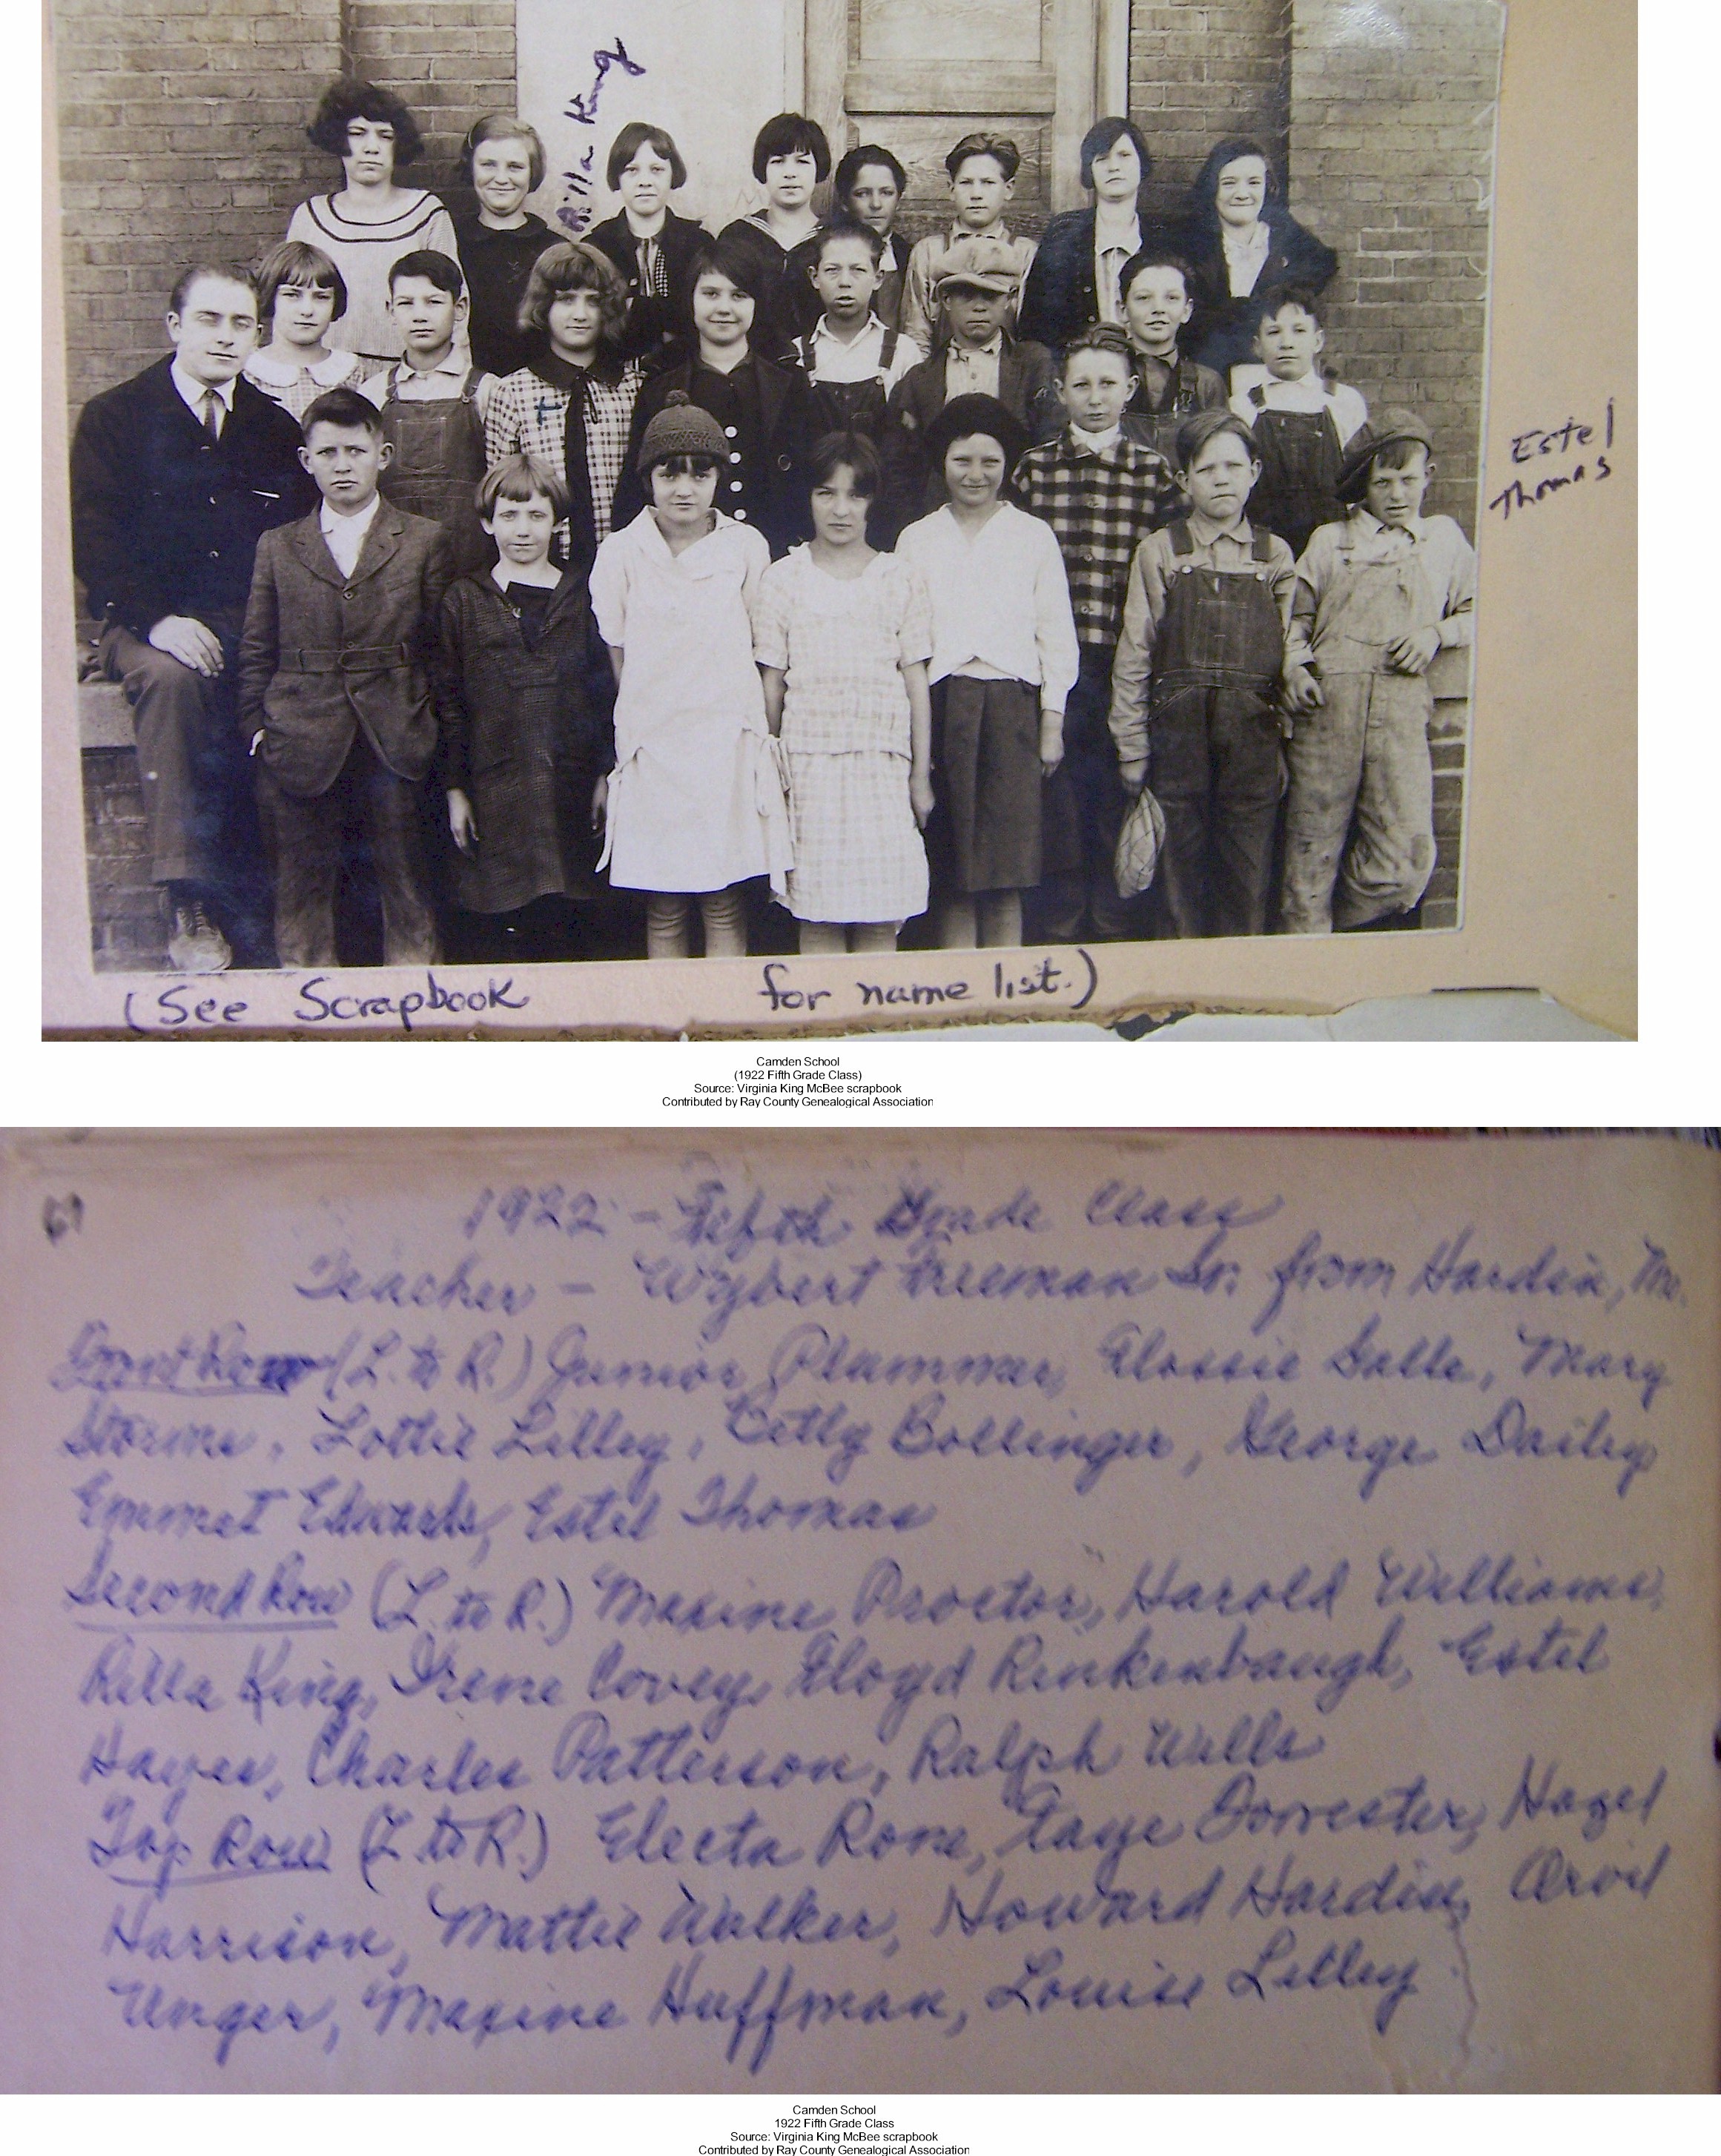 Rilla King
Estel
Thomas
(See Scrapbook for name list.)
Camden School
(1922 Fifth Grade Class)
Source: Virginia King McBee scrapbook
Contributed by Ray County Genealogical Association
61
1922 - Fifth Grade Class
Teacher - Wybert Freeman Sr. from Hardin, Mo.
Front Row (L. to R.) Junior Plummer, Flossie Galle, Mary
Storms, Lottie Lilley, Betty Bollinger, George Dailey
Emmet Edwards, Estel Thomas
Second Row (L. to R.) Maxine Proctor, Harold Williams,
Rilla King, Irene Covey, Floyd Rinkenbaugh, Estel
Hayes, Charles Patterson, Ralph Wells
Top Row (L to R.) Electa Rone, Faye Forrester, Hazel
Harrison, Mattie Walker, Howard Hardin, Arvil
Unger, Maxine Huffman, Louise Lilley
Camden School
1922 Fifth Grade Class
Source: Virginia King McBee scrapbook
Contributed by Ray County Genealogical Association